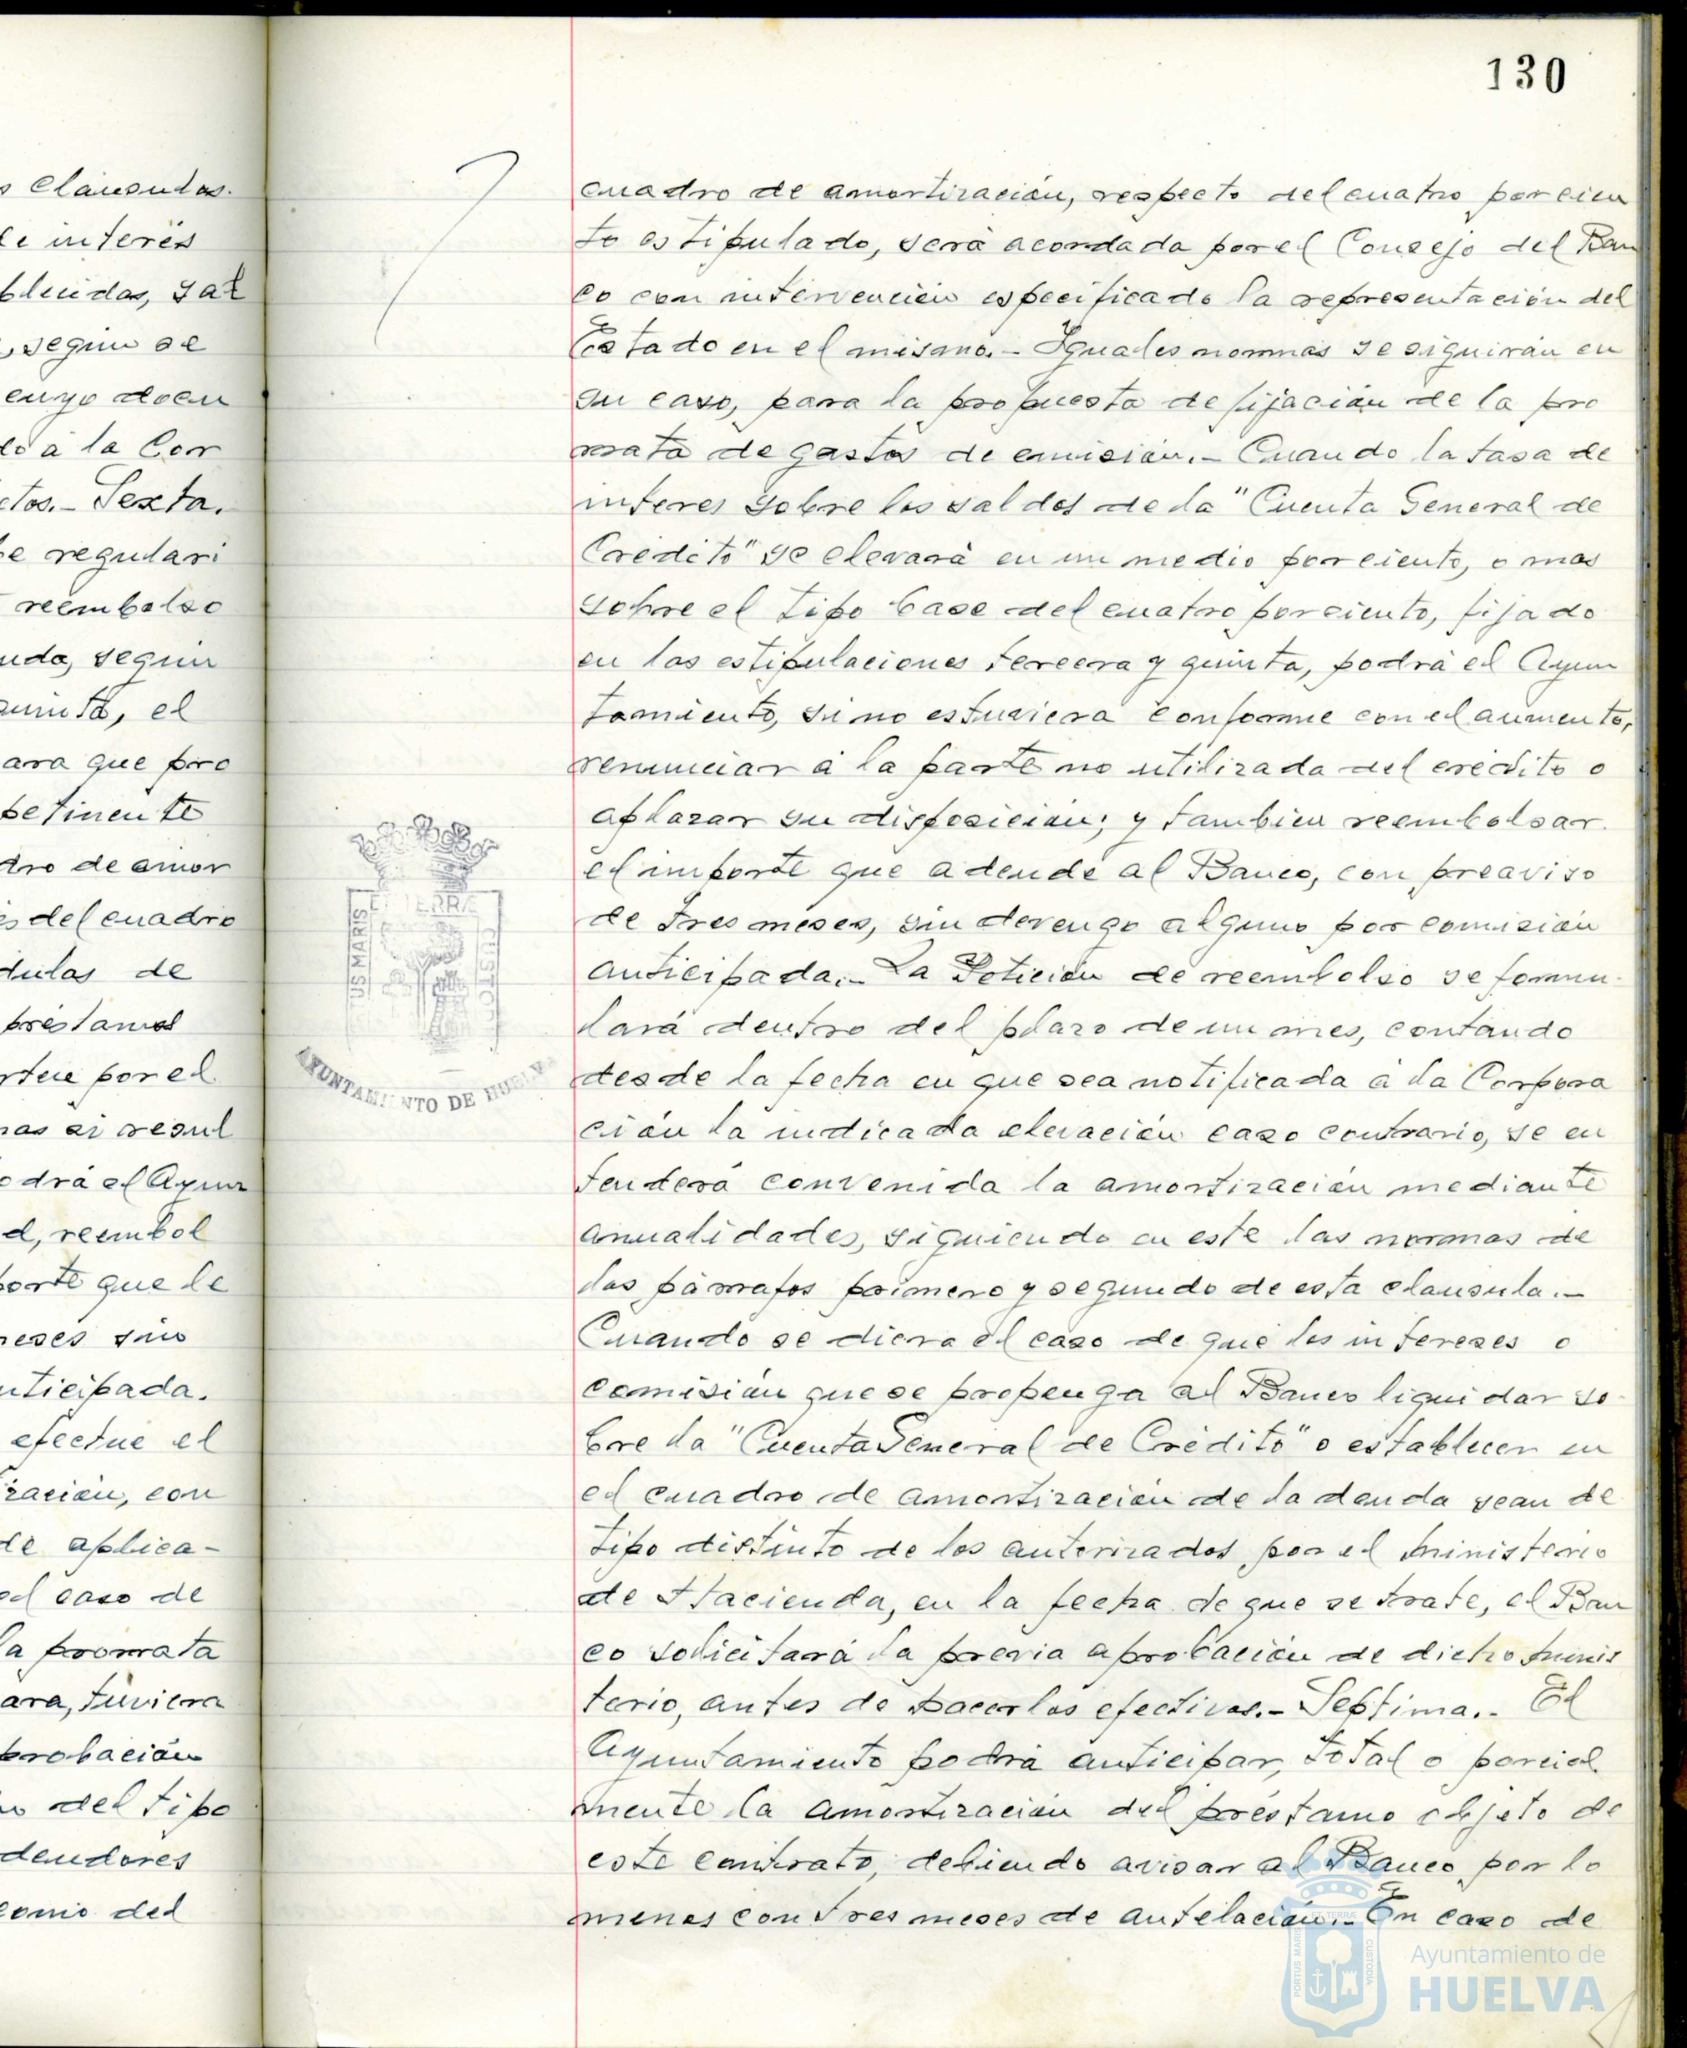 130
s clausulas.
de interés
blecidas, sal
, segun se
cuyo docu
do á la Cor
ctos.- Sexta.
be regulari
reembolso
uda, segun
quinta, el
ara que pro
petinente
dro de amor
es del cuadro
dulas de
préstamos
rtue por el
mas si resul
odrá el Ayun
d, reembol
porte que le
meses sin
nticipada.
efectue el
zación, con
de aplica-
el caso de
la prorrata
ara, tuviera
probación
del tipo
deudores
como del
cuadro de amortización, respecto del cuatro por cien
to estipulado, será acordada por el Consejo del Ban
co con intervención especificado la representación del
Estado en el mismo.- Iguales normas se siguirán en
su caso, para la propuesta de fijación de la pro
rrata de gastos de emisión.- Cuando la tasa de
interes sobre los saldos de la "Cuenta General de
Crédito" se elevará en un medio por ciento, o mas
sobre el tipo base del cuatro por ciento, fijado
en las estipulaciones tercera y quinta, podrá el Ayun
tamiento, si no estuviera conforme con el aumento,
renunciar á la parte no utilizada del crédito o
aplazar su disposición; y tambien reembolsar
el importe que adeude al Banco, con preaviso
de tres meses, sin devengo alguno por comisión
anticipada.- La Petición de reembolso se formu-
lará dentro del plazo de un mes, contando
desde la fecha en que sea notificada á la Corpora
ción la indicada elevación caso contrario, se en
tenderá convenida la amortización mediante
anualidades, siguiendo en este las normas de
los párrafos primero y segundo de esta clausula.-
Cuando se diera el caso de que los intereses o
comisión que se propenga al Banco liquidar so-
bre la "Cuenta General de Crédito" o establecer en
el cuadro de amortización de la deuda sean de
tipo distinto de los autorizados por el Ministerio
de Hacienda, en la fecha de que se trate, el Ban
co solicitará la previa aprobación de dicho Minis
terio, antes de hacerlos efectivos.- Septima.- El
Ayuntamiento podrá anticipar, total o parcial
mente la amortización del préstamo objeto de
este contrato, debiendo avisar al Banco por lo
menos con tres meses de antelación.- En caso de
AYUNTAMIENTO DE HUELVA
Ayuntamiento de
HUELVA